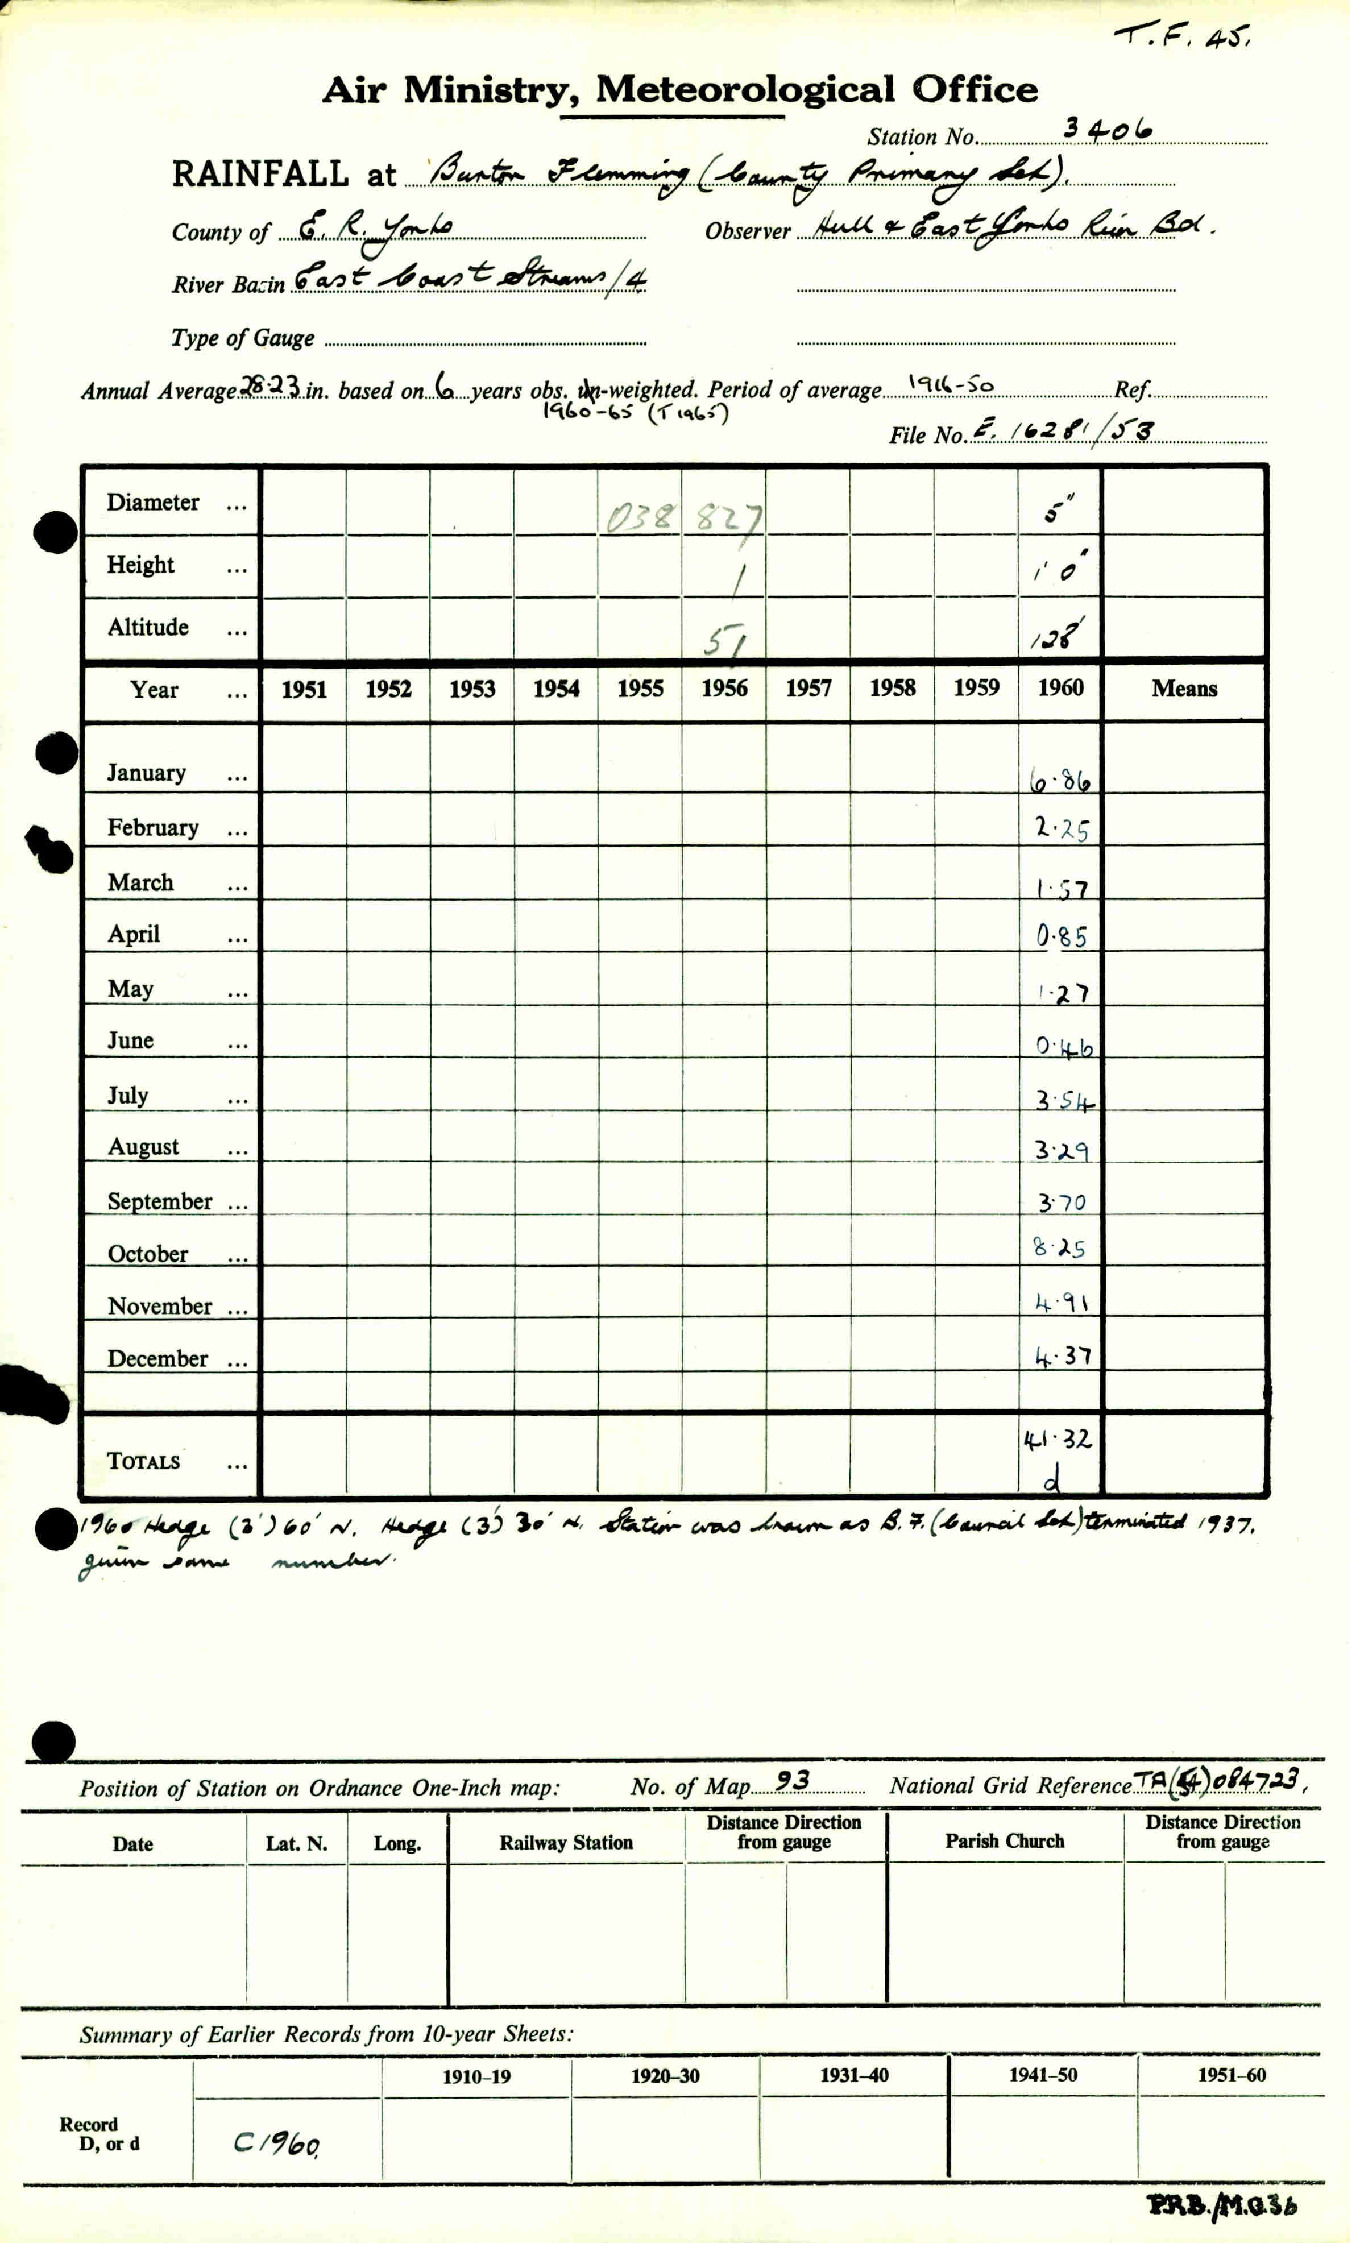 T.F. 45.
Air Ministry, Meteorological Office
Station No. 3406
RAINFALL at Burton Flemming (County Primary Sch).
County of E. R. Yorks Observer Hull & East Yorks River Bd.
River Basin East Coast Streams/4
Type of Gauge
Annual Average 28.23 in. based on 6 years obs. un-weighted. Period of average 1916-50 Ref.
1960-65 (T1965)
File No. E. 16281/53
Diameter ... 038 827 5"
Height ... 1 1' 0"
Altitude ... 51 128'
Year ... 1951 1952 1953 1954 1955 1956 1957 1958 1959 1960 Means
January ... 6.86
February ... 2.25
March ... 1.57
April ... 0.85
May ... 1.27
June ... 0.46
July ... 3.54
August ... 3.29
September ... 3.70
October ... 8.25
November ... 4.91
December ... 4.37
TOTALS ... 41.32
d
1960 Hedge (3') 60' N. Hedge (3') 30' N. Station was known as B.F. (Council Sch) terminated 1937.
given same number.
Position of Station on Ordnance One-Inch map: No. of Map 93 National Grid Reference TA(54)084723.
Date Lat. N. Long. Railway Station Distance Direction from gauge Parish Church Distance Direction from gauge
Summary of Earlier Records from 10-year Sheets:
1910–19 1920–30 1931–40 1941–50 1951–60
Record
D, or d C1960.
P.R.B./M.O.36